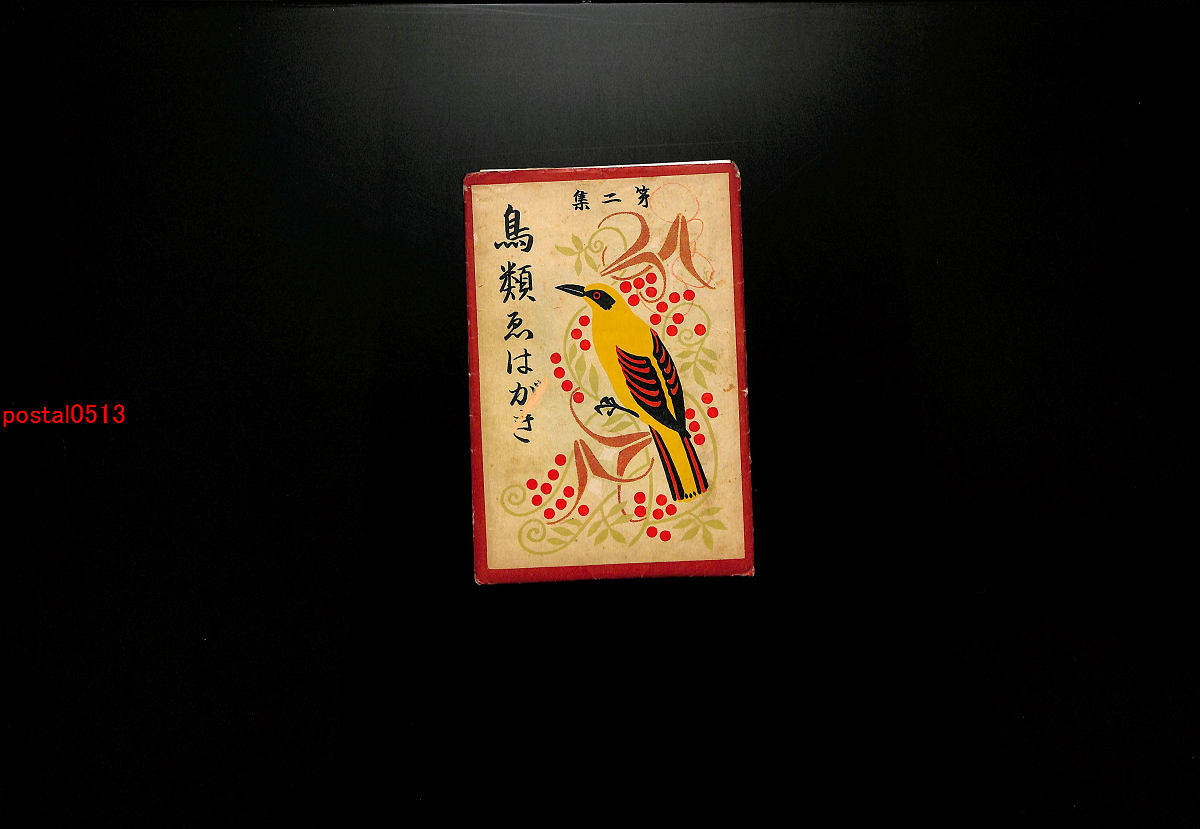 第二集
鳥類ゑはがき
postal0513